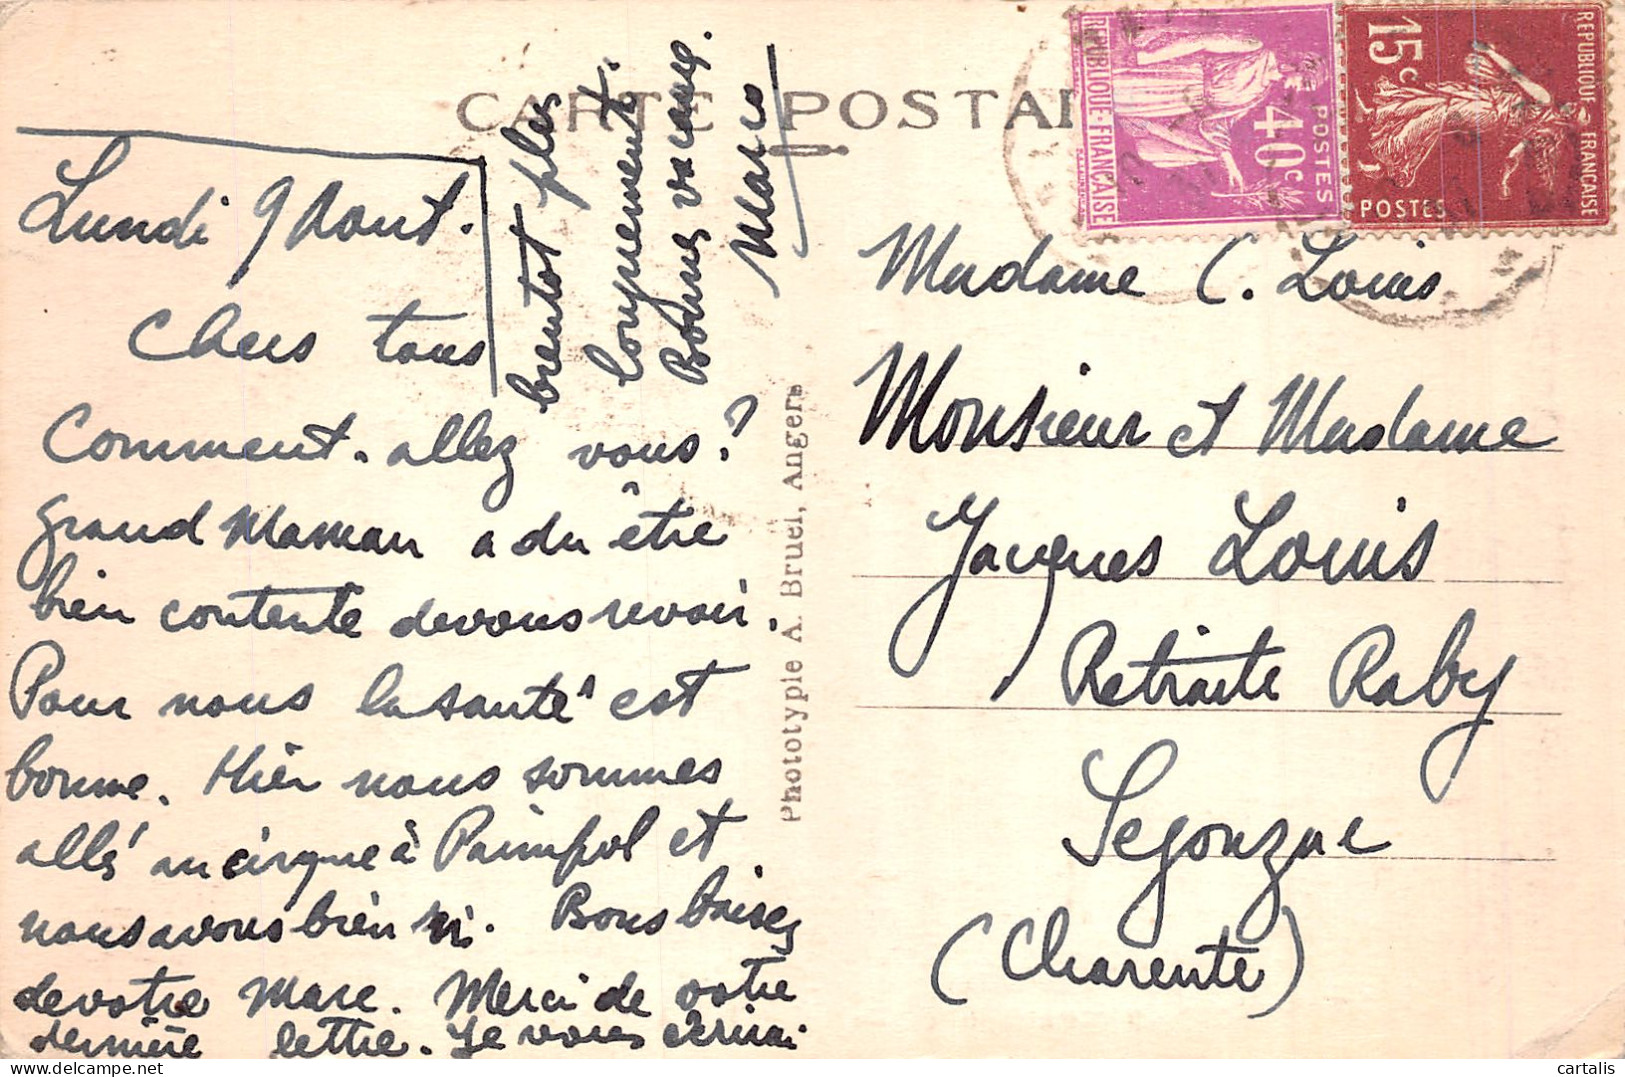 CARTE POSTALE
Lundi 9 Aout.
Chers tous
Comment. allez vous?
grand Maman a du être
bien contente de vous revoir.
Pour nous la santé est
bonne. Hier nous sommes
allé au cirque à Paimpol et
nous avons bien ri. Bons baisez
de votre Marc. Merci de votre
dernière lettre. Je vous écrirai
bientot plus
longuement.
longuement.
Bonnes vacances.
Marc
Phototypie A. Bruel, Angers
REPUBLIQUE-FRANÇAISE
40c
POSTES
15c
POSTES
REPUBLIQUE-FRANÇAISE
Madame C. Louis
Monsieur et Madame
Jacques Louis
Retraite Raby
Segonzac
(Charente)
© cartalis - delcampe.net